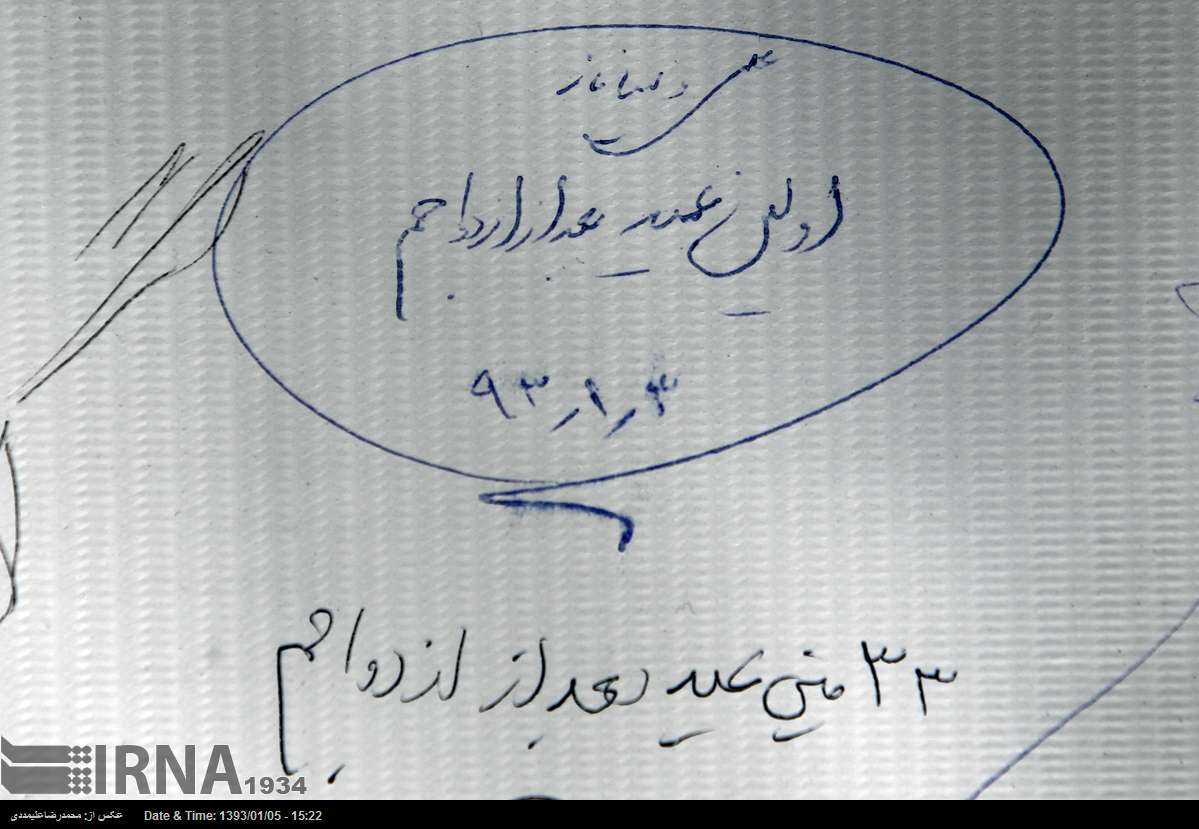 علی و نساناز
اولین عید بعد از ازدواجم
۹۳٫۱٫۴
۳۳ مین عید بعد از ازدواجم
IRNA 1934
عکس از: محمدرضاعلیمددی Date & Time: 1393/01/05 - 15:22